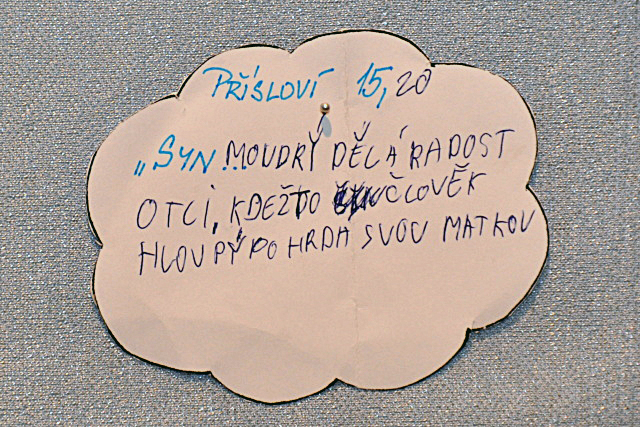 PŘÍSLOVÍ 15,20
„SYN MOUDRÝ DĚLÁ RADOST
OTCI, KDEŽTO ČLOVĚK
HLOUPÝ POHRDÁ SVOU MATKOU